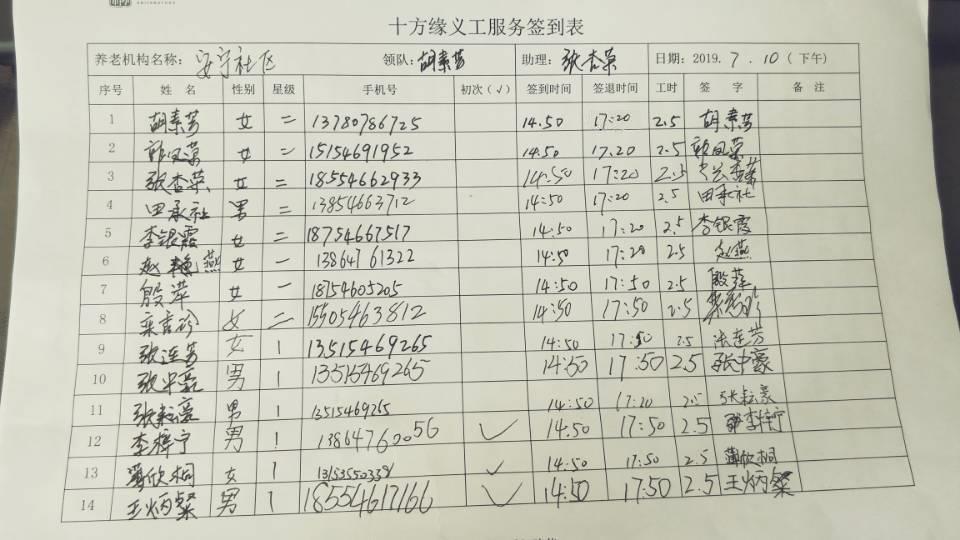 十方缘义工服务签到表
养老机构名称: 安宁社区 领队: 胡素芳 助理: 张杏荣 日期: 2019.7.10(下午)
序号 姓名 性别 星级 手机号 初次(√) 签到时间 签退时间 工时 签字 备注
1 胡素芳 女 二 13780786725 14.50 17:20 2.5 胡素芳
2 郭凤荣 女 二 15154691952 14:50 17.20 2.5 郭凤荣
3 张杏荣 女 二 18554662933 14:50 17:20 2.5 张杏荣
4 田承社 男 二 13854663712 14:50 17:20 2.5 田承社
5 李银霞 女 二 18754667517 14:50 17:20 2.5 李银霞
6 赵燕 女 一 13864761322 14:50 17:20 2.5 赵燕
7 殷萍 女 一 18754605205 14:50 17:50 2.5 殷萍
8 女 二 15505463812 14:50 17:50 2.5
9 张连芳 女 1 13515469265 14:50 17:50 2.5 张连芳
10 张中豪 男 1 13515469265 14:50 17:50 2.5 张中豪
11 男 1 13515469265 14:50 17:20 2.5
12 李梓宁 男 1 13864760056 √ 14.50 17:50 2.5 李梓宁
13 薄欣桐 女 1 √ 14:50 17:50 2.5 薄欣桐
14 王炳粲 男 1 18554617166 √ 14:50 17:50 2.5 王炳粲